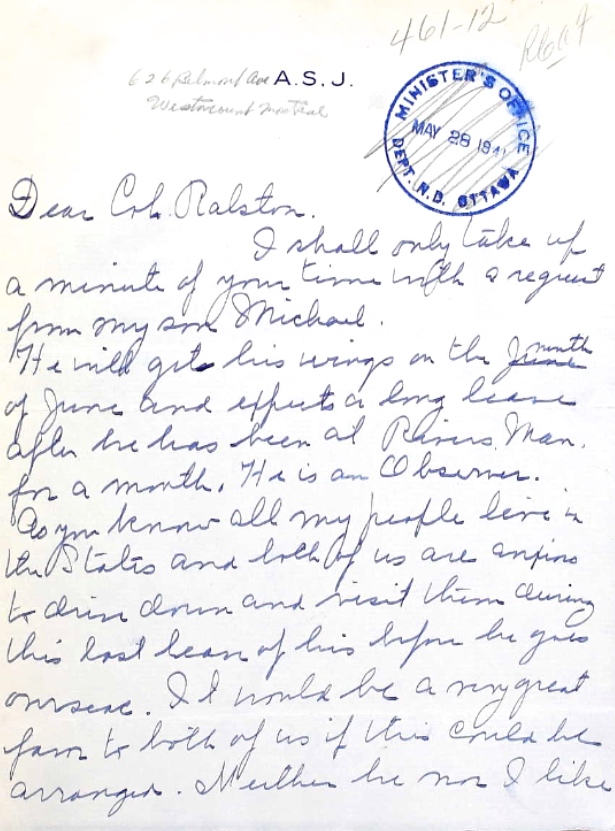 461-12
626 Belmont Ave A.S.J.
Westmount Montreal
MINISTER'S OFFICE
MAY 28 194
DEPT. N.D. OTTAWA
Dear Col. Ralston.
I shall only take up
a minute of your time with a request
from my son Michael.
He will get his wings on the June ninth
of June and expects a long leave
after he has been at Rivers, Man.
for a month. He is an Observer.
As you know all my people live in
the States and both of us are anxious
to drive down and visit them during
this last leave of his before he goes
overseas. It would be a very great
favor to both of us if this could be
arranged. Neither he nor I like